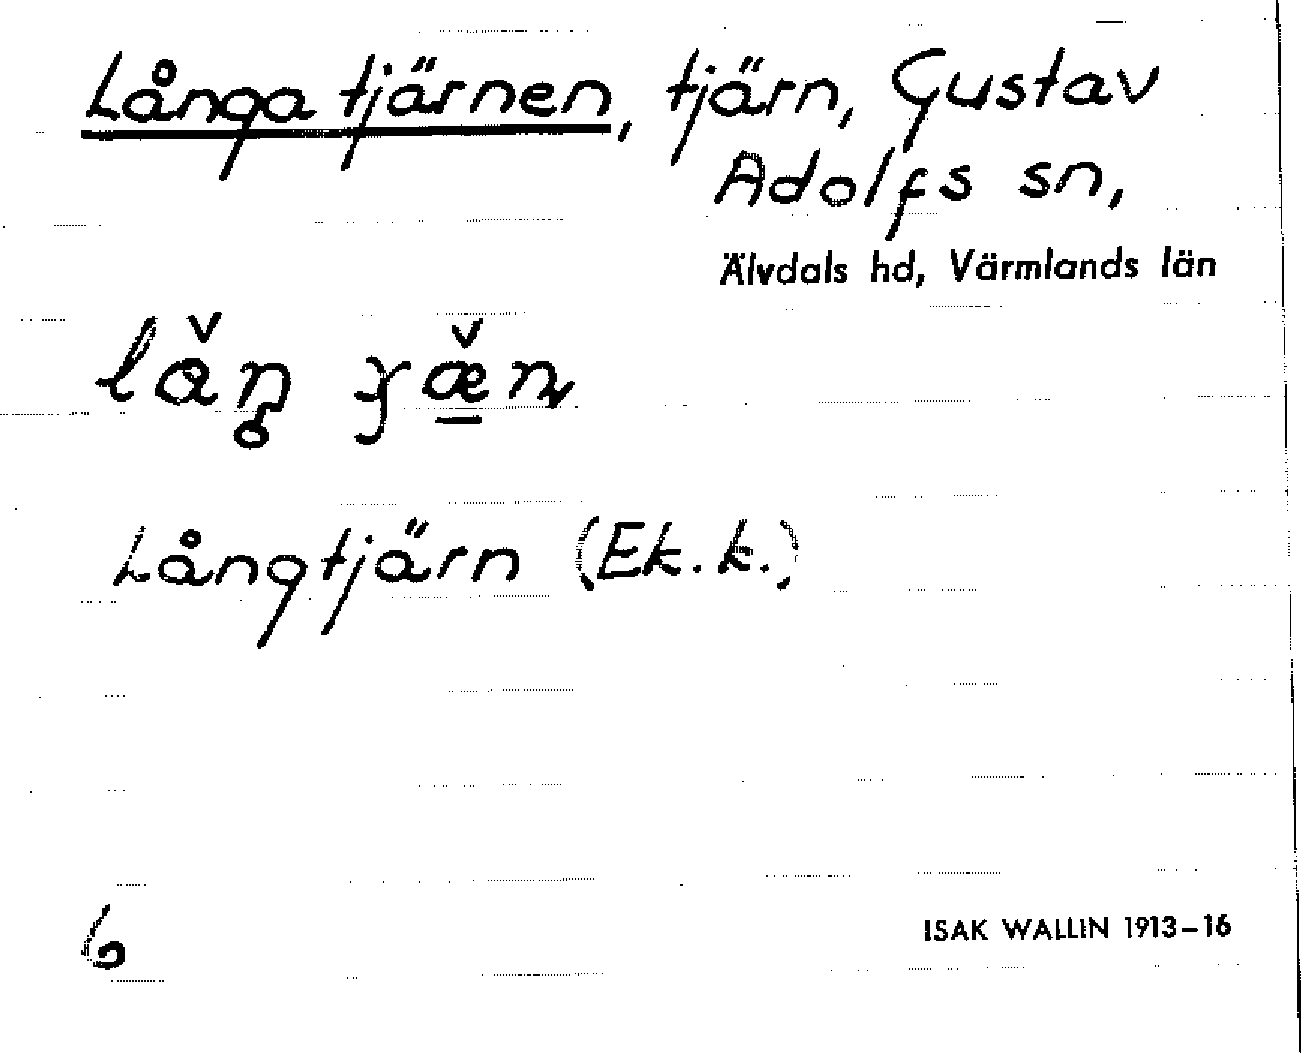 Långa tjärnen, tjärn, Gustav
Adolfs sn,
Älvdals hd, Värmlands län
Långtjärn (Ek. k.)
6
ISAK WALLIN 1913–16